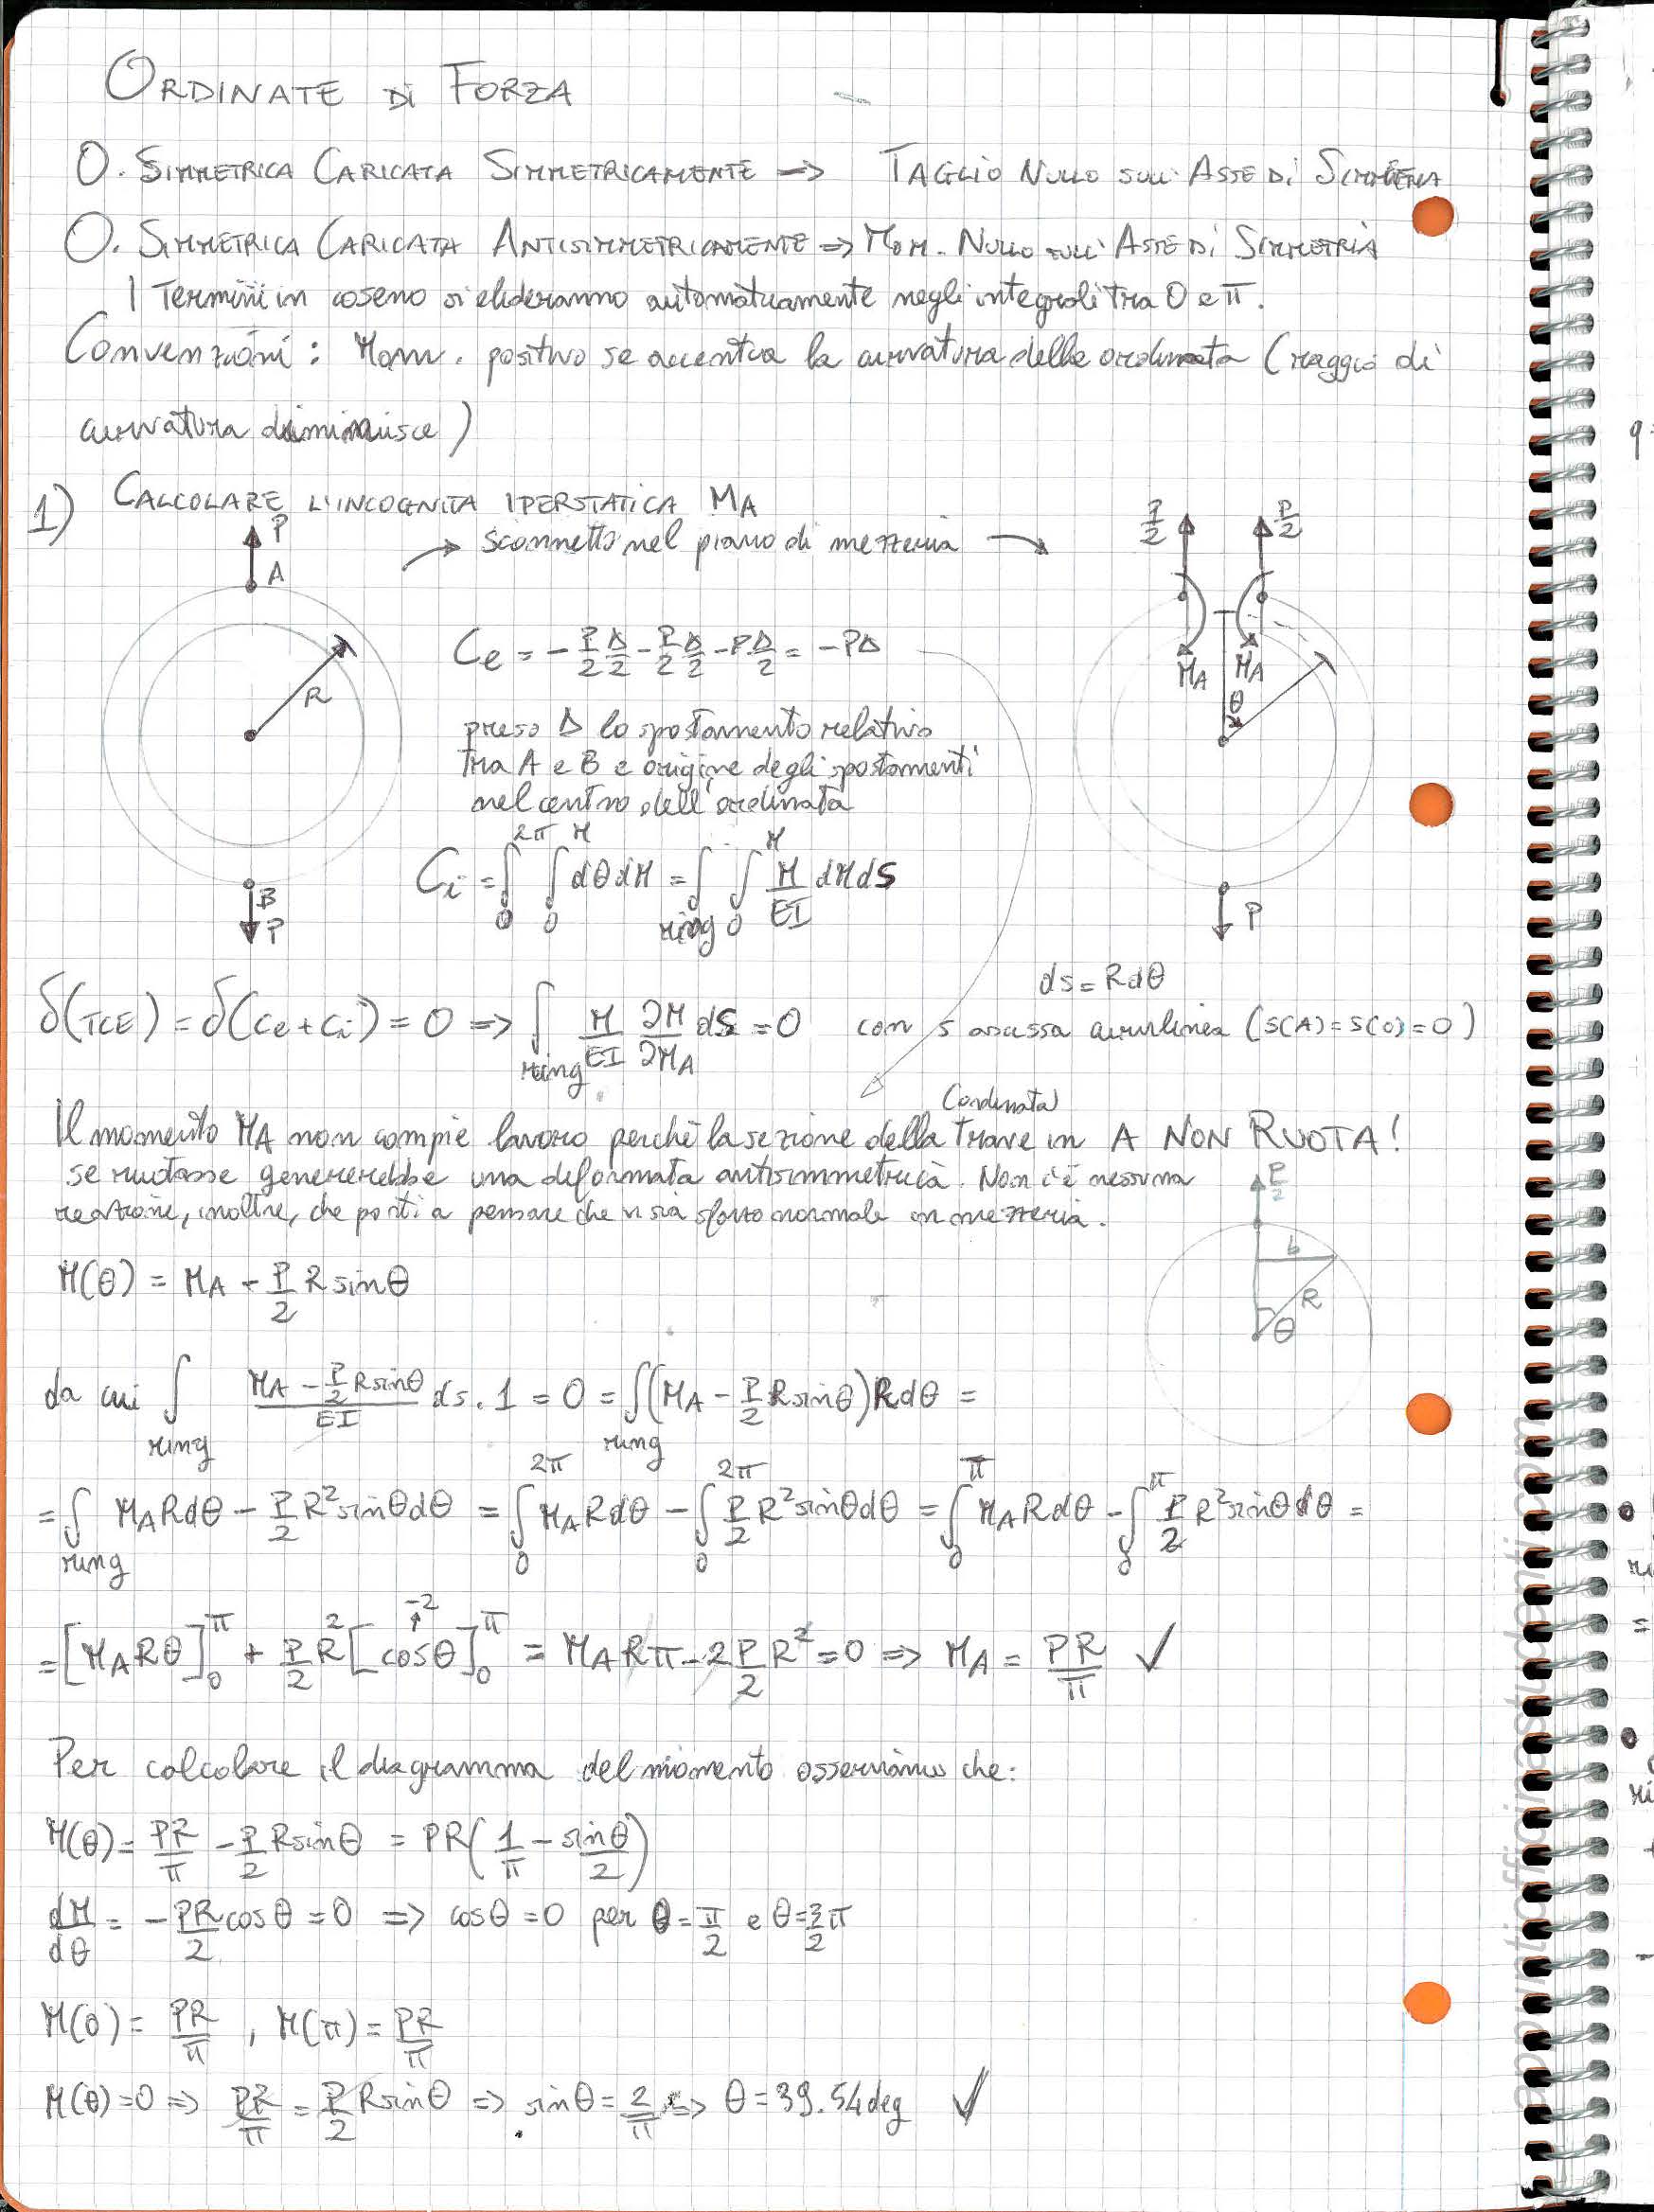 ORDINATE DI FORZA
O. SIMMETRICA CARICATA SIMMETRICAMENTE => TAGLIO NULLO SULL'ASSE DI SIMMETRIA
O. SIMMETRICA CARICATA ANTISIMMETRICAMENTE => MOM. NULLO SULL'ASSE DI SIMMETRIA
I Termini in coseno si elideranno automaticamente negli integrali tra 0 e π.
Convenzioni: Mom. positivo se accentua la curvatura della ordinata (raggio di
curvatura diminuisce)
1) CALCOLARE L'INCOGNITA IPERSTATICA MA
→ sconnetto nel piano di mezzeria →
P
A
R
B
P
P/2 P/2
MA MA
θ
P
Ce = -P/2 Δ/2 - P/2 Δ/2 - P Δ/2 = -PΔ
preso Δ lo spostamento relativo
tra A e B e origine degli spostamenti
nel centro dell'ordinata
Ci = ∫₀^2π ∫₀^M dθdM = ∫ring ∫₀^M M/EI dMds
ds = Rdθ
δ(TCE) = δ(Ce+Ci) = 0 => ∫ring M/EI ∂M/∂MA ds = 0 con s ascissa curvilinea (s(A)=s(0)=0)
(ordinata)
Il momento MA non compie lavoro perchè la sezione della trave in A NON RUOTA!
se ruotasse genererebbe una deformata antisimmetrica. Non c'è nessuna
reazione, inoltre, che porti a pensare che vi sia sforzo normale in mezzeria.
P/2
b
R
θ
M(θ) = MA - P/2 R sinθ
da cui ∫ring (MA - P/2 R sinθ)/EI ds · 1 = 0 = ∫ring (MA - P/2 R sinθ) R dθ =
= ∫ring MA R dθ - P/2 R² sinθ dθ = ∫₀^2π MA R dθ - ∫₀^2π P/2 R² sinθ dθ = ∫₀^π MA R dθ - ∫₀^π P/2 R² sinθ dθ =
= [MA R θ]₀^π + P/2 R² [cosθ]₀^π ↑ -2 = MA R π - 2 P/2 R² = 0 => MA = PR/π ✓
Per calcolare il diagramma del momento osserviamo che:
M(θ) = PR/π - P/2 R sinθ = PR(1/π - sinθ/2)
dM/dθ = -PR/2 cosθ = 0 => cosθ = 0 per θ = π/2 e θ = 3/2 π
M(0) = PR/π , M(π) = PR/π
M(θ) = 0 => PR/π = P/2 R sinθ => sinθ = 2/π => θ = 39.54 deg ✓